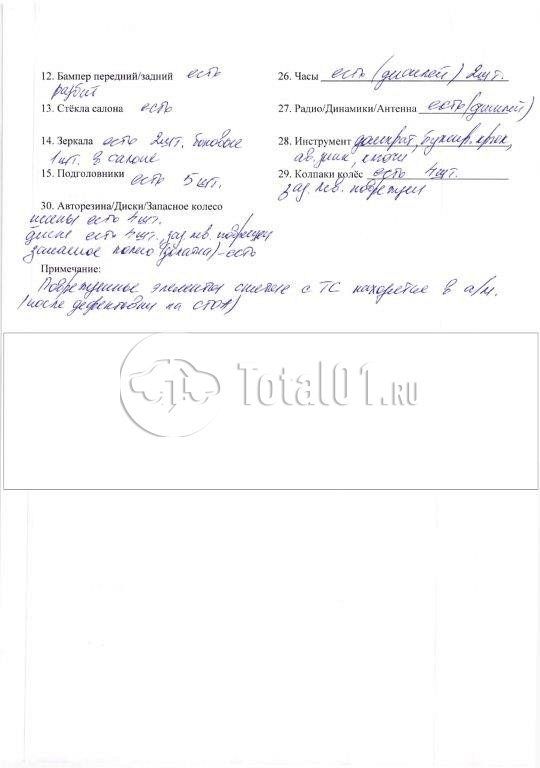 12. Бампер передний/задний есть
разбит
13. Стёкла салона есть
14. Зеркала есть 2шт. боковые
1шт. в салоне
15. Подголовники есть 5 шт.
26. Часы есть (дисплей) 2шт.
27. Радио/Динамики/Антенна есть (дисплей)
28. Инструмент домкрат, буксир. крюк,
ав. знак, ключи
29. Колпаки колёс есть 4шт.
зад. лев. поврежден
30. Авторезина/Диски/Запасное колесо
есть 4 шт.
диски есть 4 шт., зад. лев. поврежден
запасное колесо (докатка) - есть
Примечание:
Поврежденные элементы снятые с ТС находятся в а/м.
(после дефектовки на СТОА)
Total01.RU